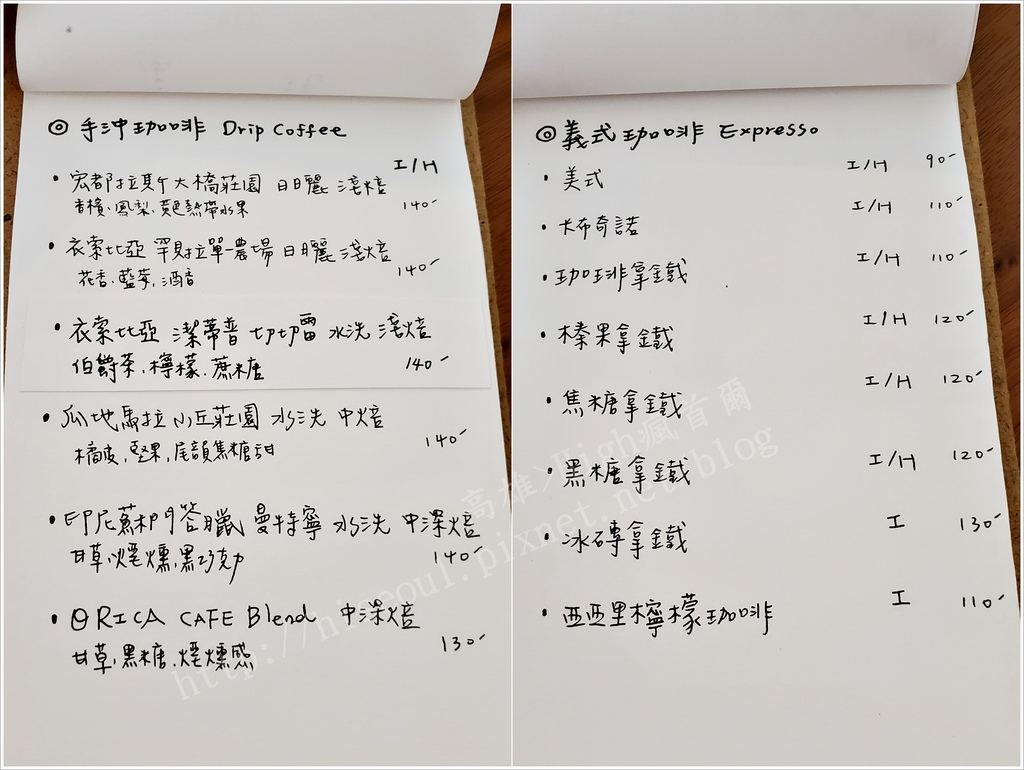 ◎ 手沖珈啡 Drip Coffee
I/H
• 宏都拉斯 大橋莊園 日曬 淺焙
香檳、鳳梨、黃色熱帶水果 140-
• 衣索比亞 罕貝拉單一農場 日曬 淺焙
花香、藍莓、酒香 140-
• 衣索比亞 潔蒂普 切切雷 水洗 淺焙
伯爵茶、檸檬、蔗糖 140-
• 瓜地馬拉 小丘莊園 水洗 中焙
橘皮、堅果、尾韻焦糖甜 140-
• 印尼蘇門答臘 曼特寧 水洗 中深焙
甘草、煙燻、黑巧克力 140-
• ORICA CAFE Blend 中深焙
甘草、黑糖、煙燻感 130-
◎義式珈啡 Expresso
• 美式 I/H 90-
• 卡布奇諾 I/H 110-
• 珈琲拿鐵 I/H 110-
• 榛果拿鐵 I/H 120-
• 焦糖拿鐵 I/H 120-
• 黑糖拿鐵 I/H 120-
• 冰磚拿鐵 I 130-
• 西西里檸檬珈啡 I 110-
高雄>High瘋首爾
http://hiseoul.pixnet.net/blog